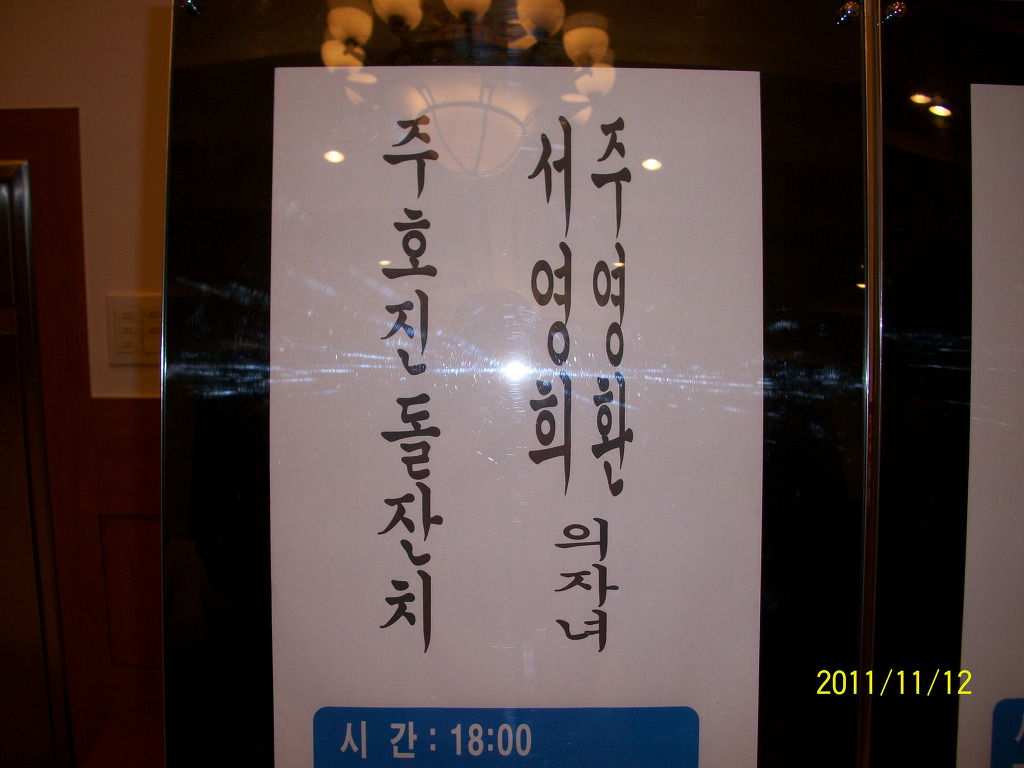 주영환
서영희
의자녀
주호진돌잔치
시 간 : 18:00
2011/11/12